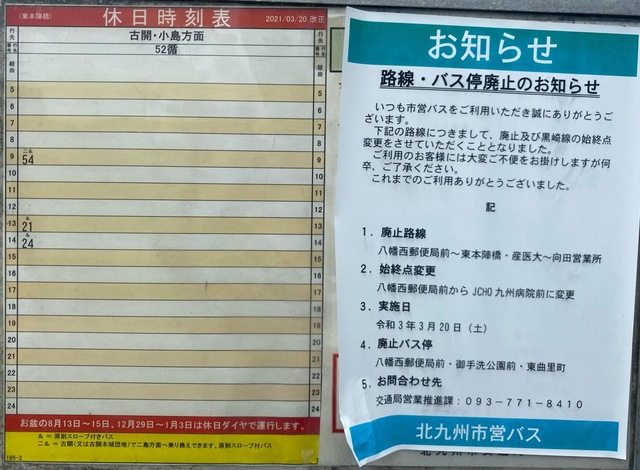 (東本陣橋) 休日時刻表 2021/03/20 改正
行先 古開・小島方面 行先
番号 52循 番号
経由 経由
5 5
6 6
7 7
8 8
9 ニ& 54 9
10 10
11 11
12 12
13 & 21 13
14 & 24 14
15 15
16 16
17 17
18 18
19 19
20 20
21 21
22 22
23 23
24 24
お盆の8月13日～15日、12月29日～1月3日は休日ダイヤで運行します。
&=原則スロープ付きバス
ニ&=古開(又は古開本城団地)で二島方面へ乗り換えできます。原則スロープ付バス
185-2
お知らせ
路線・バス停廃止のお知らせ
いつも市営バスをご利用いただき誠にありがとうご
ざいます。
下記の路線につきまして、廃止及び黒崎線の始終点
変更をさせていただくこととなりました。
ご利用のお客様には大変ご不便をお掛けしますが何
卒、ご了承ください。
これまでのご利用ありがとうございました。
記
1.廃止路線
八幡西郵便局前～東本陣橋・産医大～向田営業所
2.始終点変更
八幡西郵便局前からJCHO九州病院前に変更
3.実施日
令和3年3月20日(土)
4.廃止バス停
八幡西郵便局前・御手洗公園前・東曲里町
5.お問合わせ先
交通局営業推進課:093-771-8410
北九州市営バス